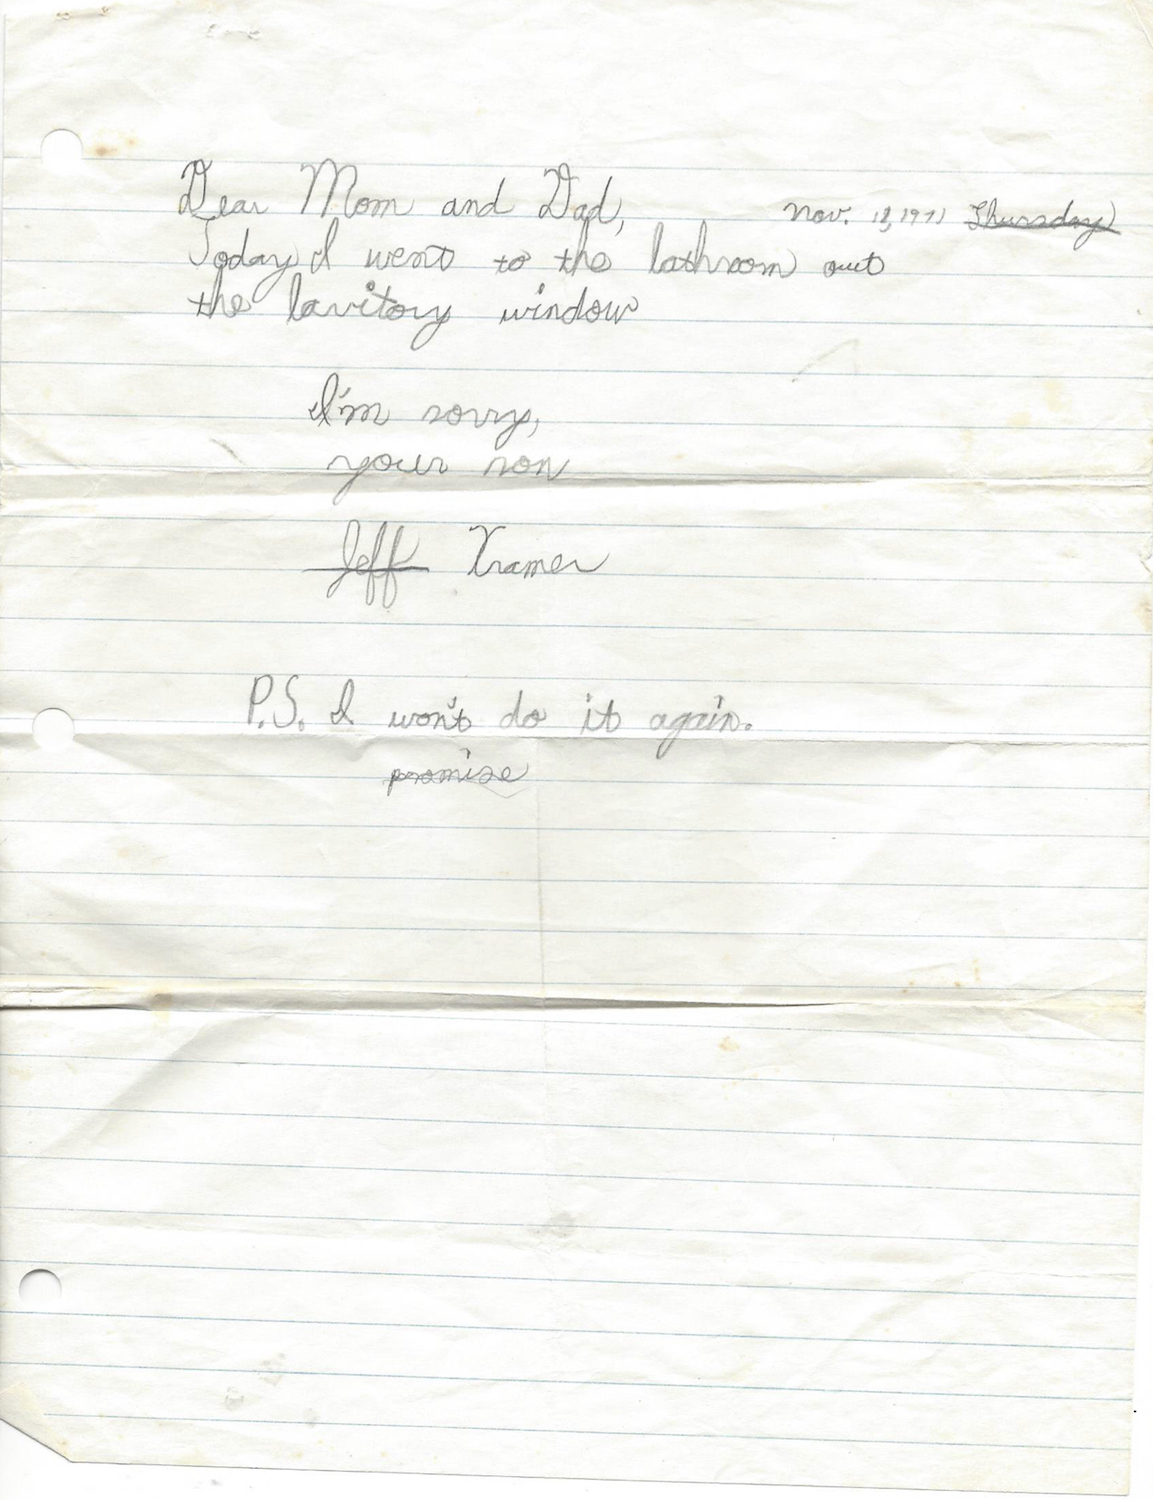 Dear Mom and Dad,
Nov. 18, 1971 Thursday
Today I went to the bathroom out
the lavitory window
I'm sorry,
your son
Jeff Kramer
P.S. I won't do it again.
promise